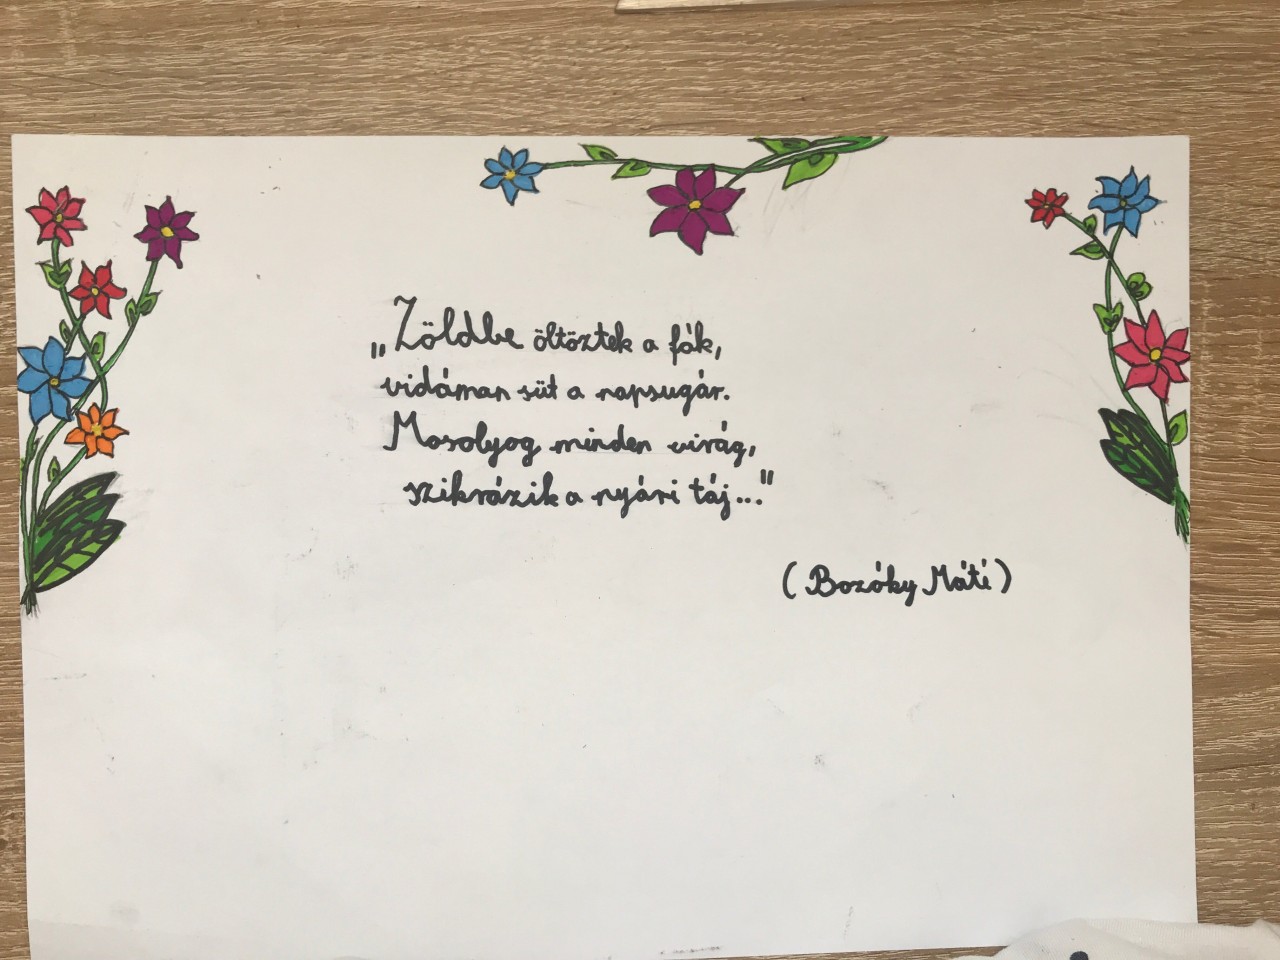 „Zöldbe öltöztek a fák,
vidáman süt a napsugár.
Mosolyog minden virág,
szikrázik a nyári táj..."
(Bozóky Máti)